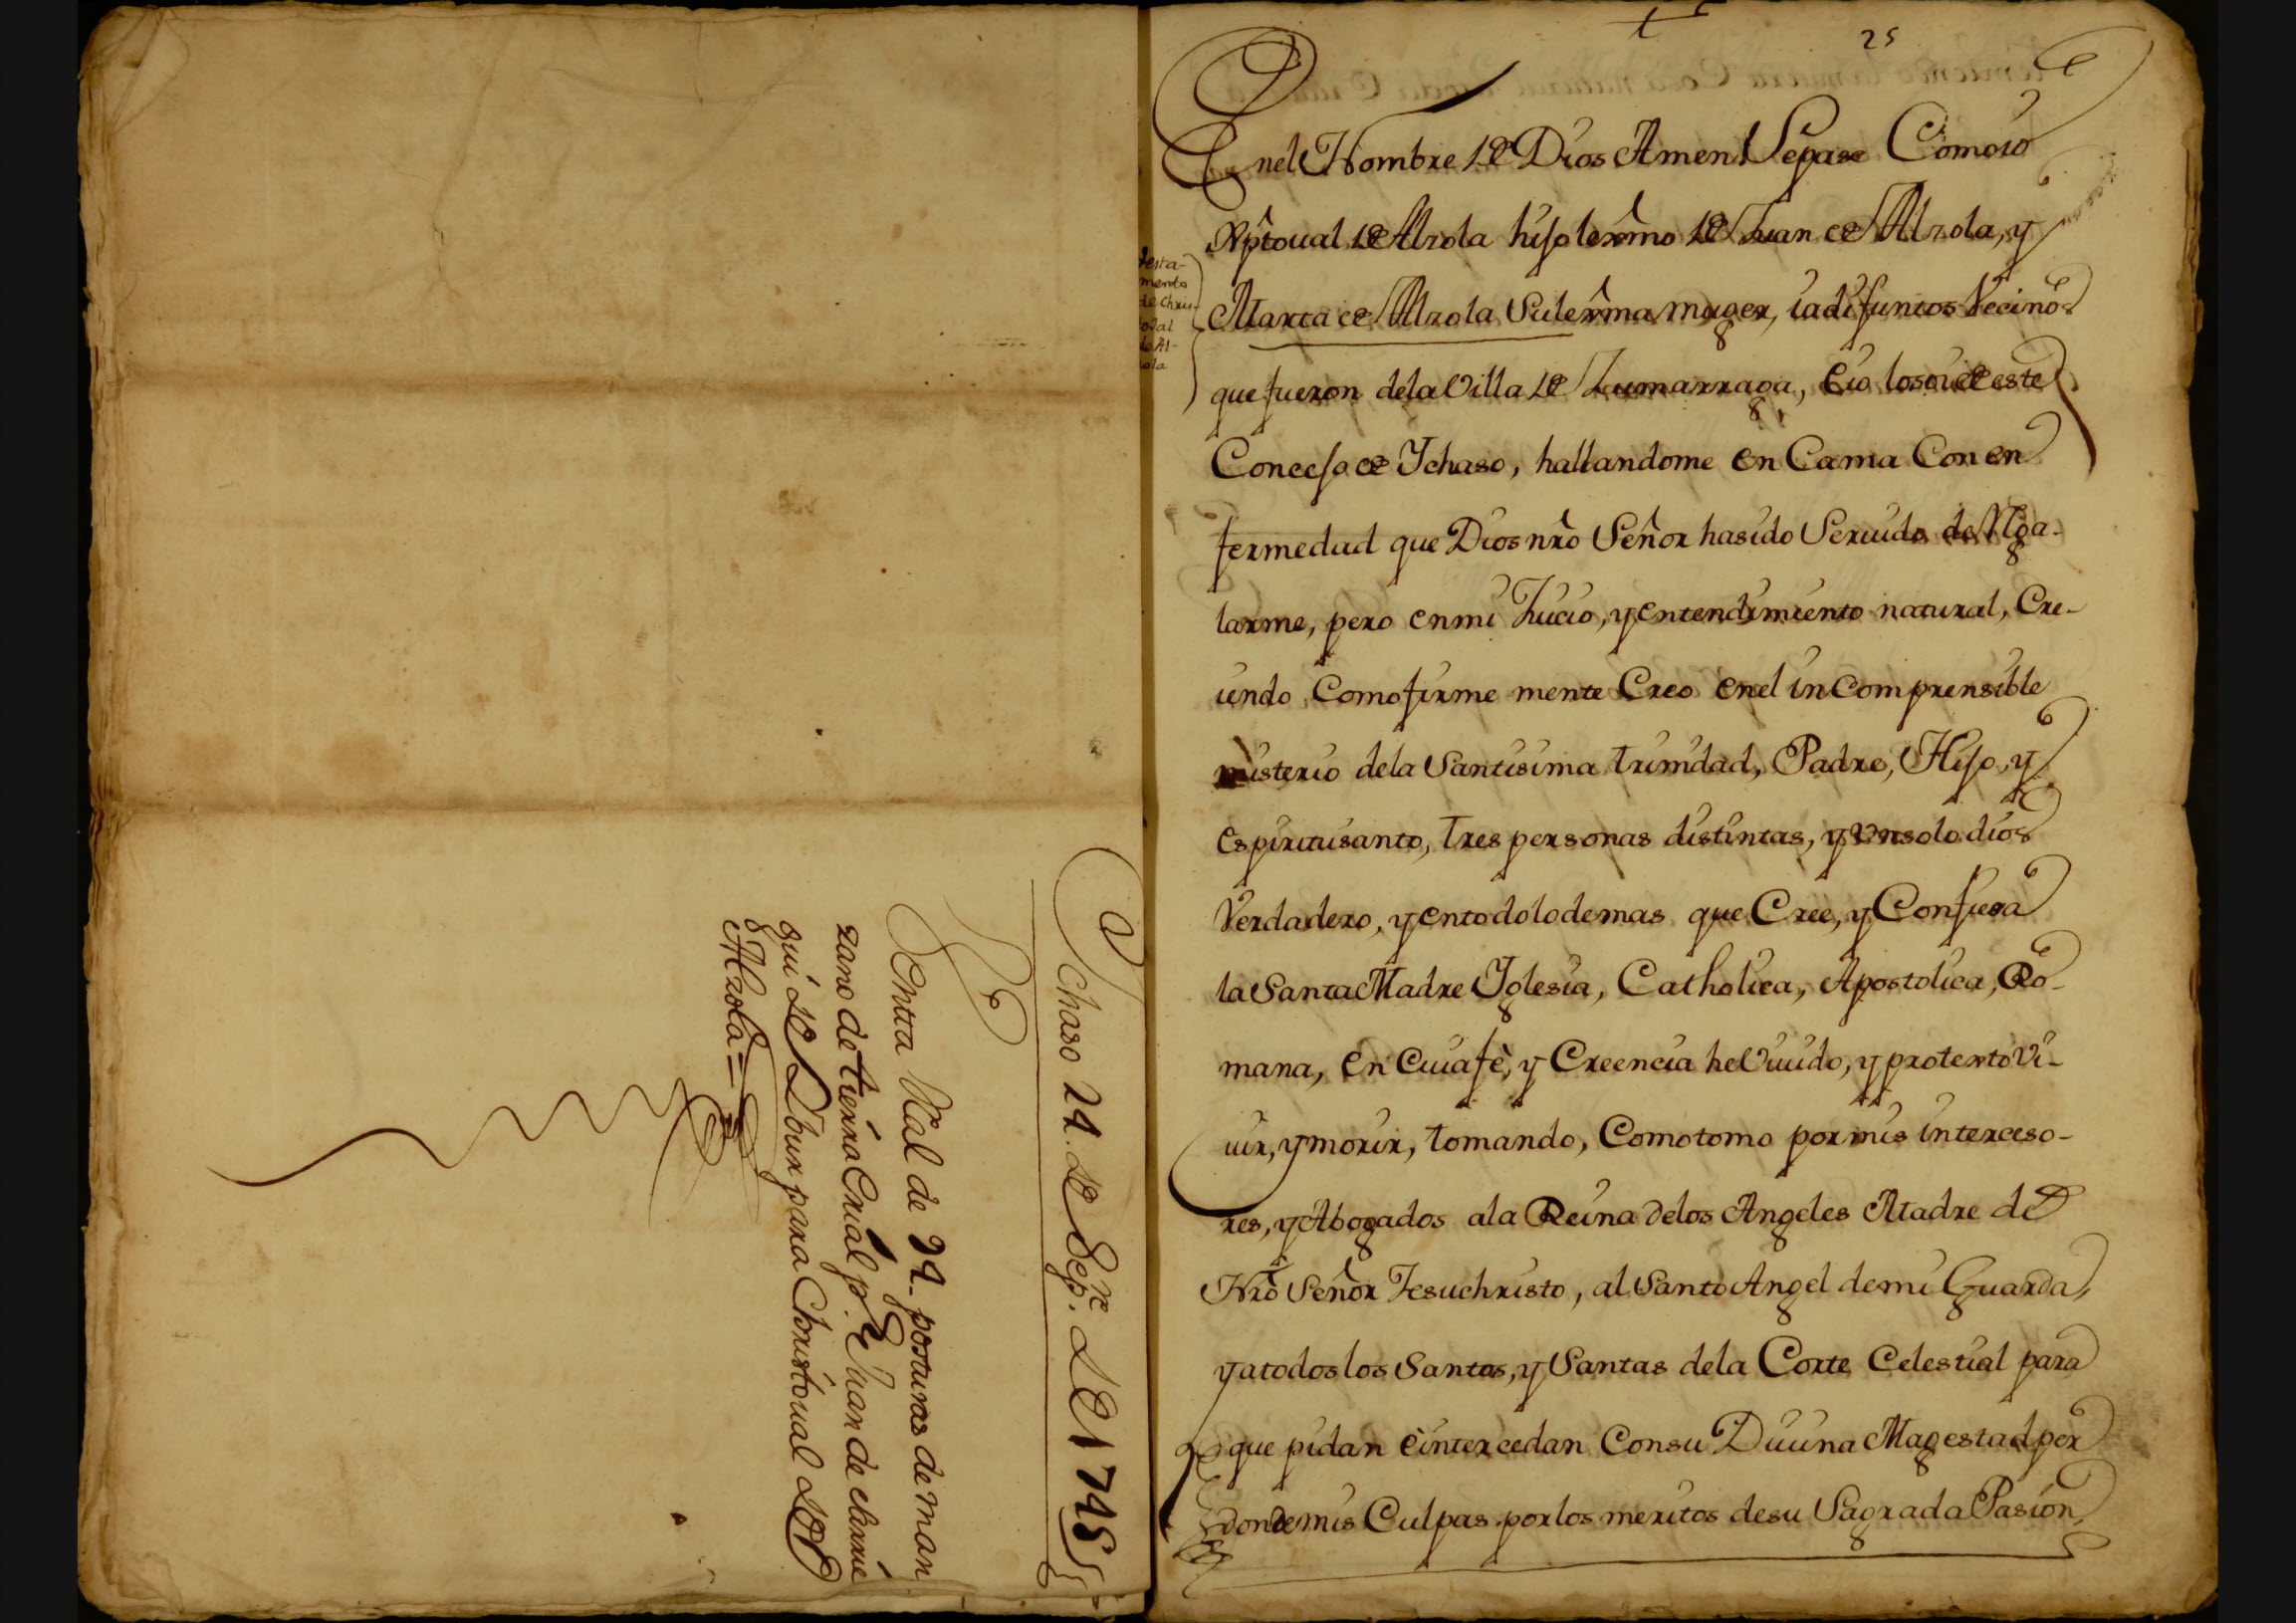 Ychaso 24. de Sepre. de 1745
Venta Real de 24. posturas de man
zano de tierra Erial pr. Juan de eherrie
gui de Ibur para Christoual de
Alzola=
25
En el Nombre de Dios Amen Sepase Como io
Xptoual de Alzola hijo lexmo de Juan de Alzola, y
Maria de Alzola Su lexma muger, ia difuntos Vecinos
que fueron dela Villa de Zumarraga, Eio lo soi de este
Concejo de Ychaso, hallandome en Cama Con en
fermedad que Dios nro Señor ha sido Seruido de Rega-
larme, pero en mi Juicio, y entendimiento natural, Cre-
iendo Como firme mente Creo enel inComprensible
misterio dela Santisima trinidad, Padre, Hijo, y
espiritusanto, tres personas distintas, y vn solo dios
Verdadero, y entodo lo demas que Cree, y Confiesa
la Santa Madre Yglesia, Catholica, Apostolica, Ro-
mana, en Cuia fè, y Creencia he Viuido, y protexto Vi-
uir, y morir, tomando, Como tomo por mis interceso-
res, y Abogados ala Reina delos Angeles Madre de
Nro Señor Jesuchristo, al Santo Angel demi Guarda,
y atodos los Santos, y Santas dela Corte Celestial para
que pidan è intercedan Consu Diuina Magestad per
don de mis Culpas por los meritos desu Sagrada Pasion,
testa-
mento
de Chris-
toval
de Al-
zola